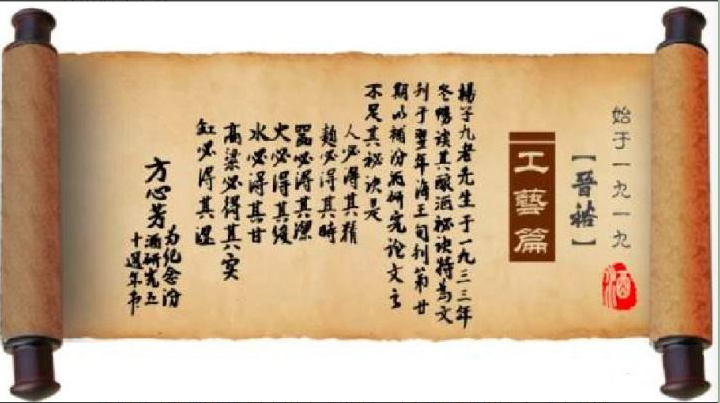 始于一九一九
【晉裕】
酒
工藝篇
楊子九老先生于一九三三年
冬暢談其釀酒秘诀特为文
刊于翌年海王旬刊第廿
期以補汾酒研究论文之
不足其秘诀是
人必得其精
麯必得其時
器必得其潔
火必得其缓
水必得其甘
高粱必得其实
缸必得其湿
方心芳
为纪念汾
酒研究五
十週年书